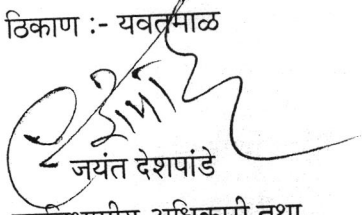 ठिकाण :- यवतमाळ
जयंत देशपांडे
अधिकारी तथा